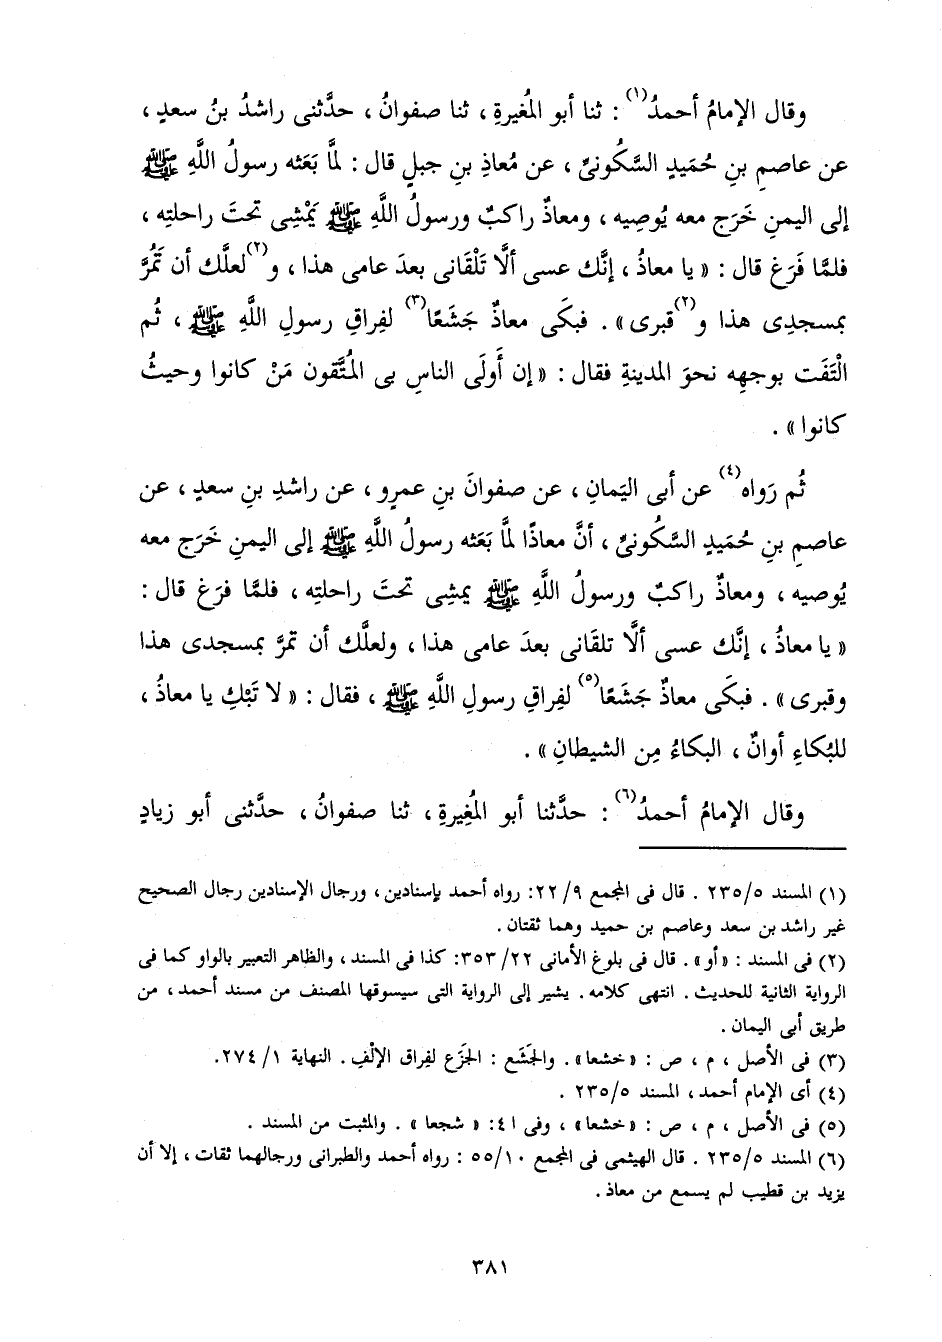 وقال الإمامُ أحمدُ(١) : ثنا أبو المُغيرةِ ، ثنا صفوانُ ، حدَّثنى راشدُ بنُ سعدٍ ،
عن عاصمِ بنِ حُمَيدٍ السَّكُونىِّ ، عن مُعاذِ بنِ جبلٍ قال : لمَّا بَعَثه رسولُ اللَّهِ ﷺ
إلى اليمنِ خَرَج معه يُوصِيه ، ومعاذٌ راكبٌ ورسولُ اللَّهِ ﷺ يَمْشِى تحتَ راحلتِه ،
فلمَّا فَرَغ قال : « يا معاذُ ، إنَّك عسى ألَّا تَلْقَانى بعدَ عامى هذا ، و(٢)لعلَّك أن تَمُرَّ
بمسجدِى هذا و(٢)قبرى » . فبكَى معاذٌ جَشَعًا(٣) لفِراقِ رسولِ اللَّهِ ﷺ ، ثُم
الْتَفَت بوجهِه نحوَ المدينةِ فقال : « إن أَولَى الناسِ بى المُتَّقون مَنْ كانوا وحيثُ
كانوا » .
ثُم رَواه(٤) عن أبى اليَمانِ ، عن صفوانَ بنِ عمرٍو ، عن راشدِ بنِ سعدٍ ، عن
عاصمِ بنِ حُمَيدٍ السَّكُونىِّ ، أنَّ معاذًا لمَّا بَعَثه رسولُ اللَّهِ ﷺ إلى اليمنِ خَرَج معه
يُوصيه ، ومعاذٌ راكبٌ ورسولُ اللَّهِ ﷺ يمشِى تحتَ راحلتِه ، فلمَّا فرَغ قال :
« يا معاذُ ، إنَّك عسى ألَّا تلقَانى بعدَ عامى هذا ، ولعلَّك أن تمرَّ بمسجدى هذا
وقبرى » . فبكَى معاذٌ جَشَعًا(٥) لفِراقِ رسولِ اللَّهِ ﷺ ، فقال : « لا تَبْكِ يا معاذُ ،
للبُكاءِ أوانٌ ، البكاءُ مِن الشيطانِ » .
وقال الإمامُ أحمدُ(٦) : حدَّثنا أبو المُغِيرةِ ، ثنا صفوانُ ، حدَّثنى أبو زيادٍ
(١) المسند ٢٣٥/٥ . قال فى المجمع ٢٢/٩ : رواه أحمد بإسنادين ، ورجال الإسنادين رجال الصحيح
غير راشد بن سعد وعاصم بن حميد وهما ثقتان .
(٢) فى المسند : « أو » . قال فى بلوغ الأمانى ٣٥٣/٢٢ : كذا فى المسند ، والظاهر التعبير بالواو كما فى
الرواية الثانية للحديث . انتهى كلامه . يشير إلى الرواية التى سيسوقها المصنف من مسند أحمد ، من
طريق أبى اليمان .
(٣) فى الأصل ، م ، ص : « خشعا » . والجَشَع : الجَزَع لفِراق الإلْفِ . النهاية ٢٧٤/١ .
(٤) أى الإمام أحمد ، المسند ٢٣٥/٥ .
(٥) فى الأصل ، م ، ص : « خشعا » ، وفى ٤١ : « شجعا » . والمثبت من المسند .
(٦) المسند ٢٣٥/٥ . قال الهيثمى فى المجمع ٥٥/١٠ : رواه أحمد والطبرانى ورجالهما ثقات ، إلا أن
يزيد بن قطيب لم يسمع من معاذ .
٣٨١